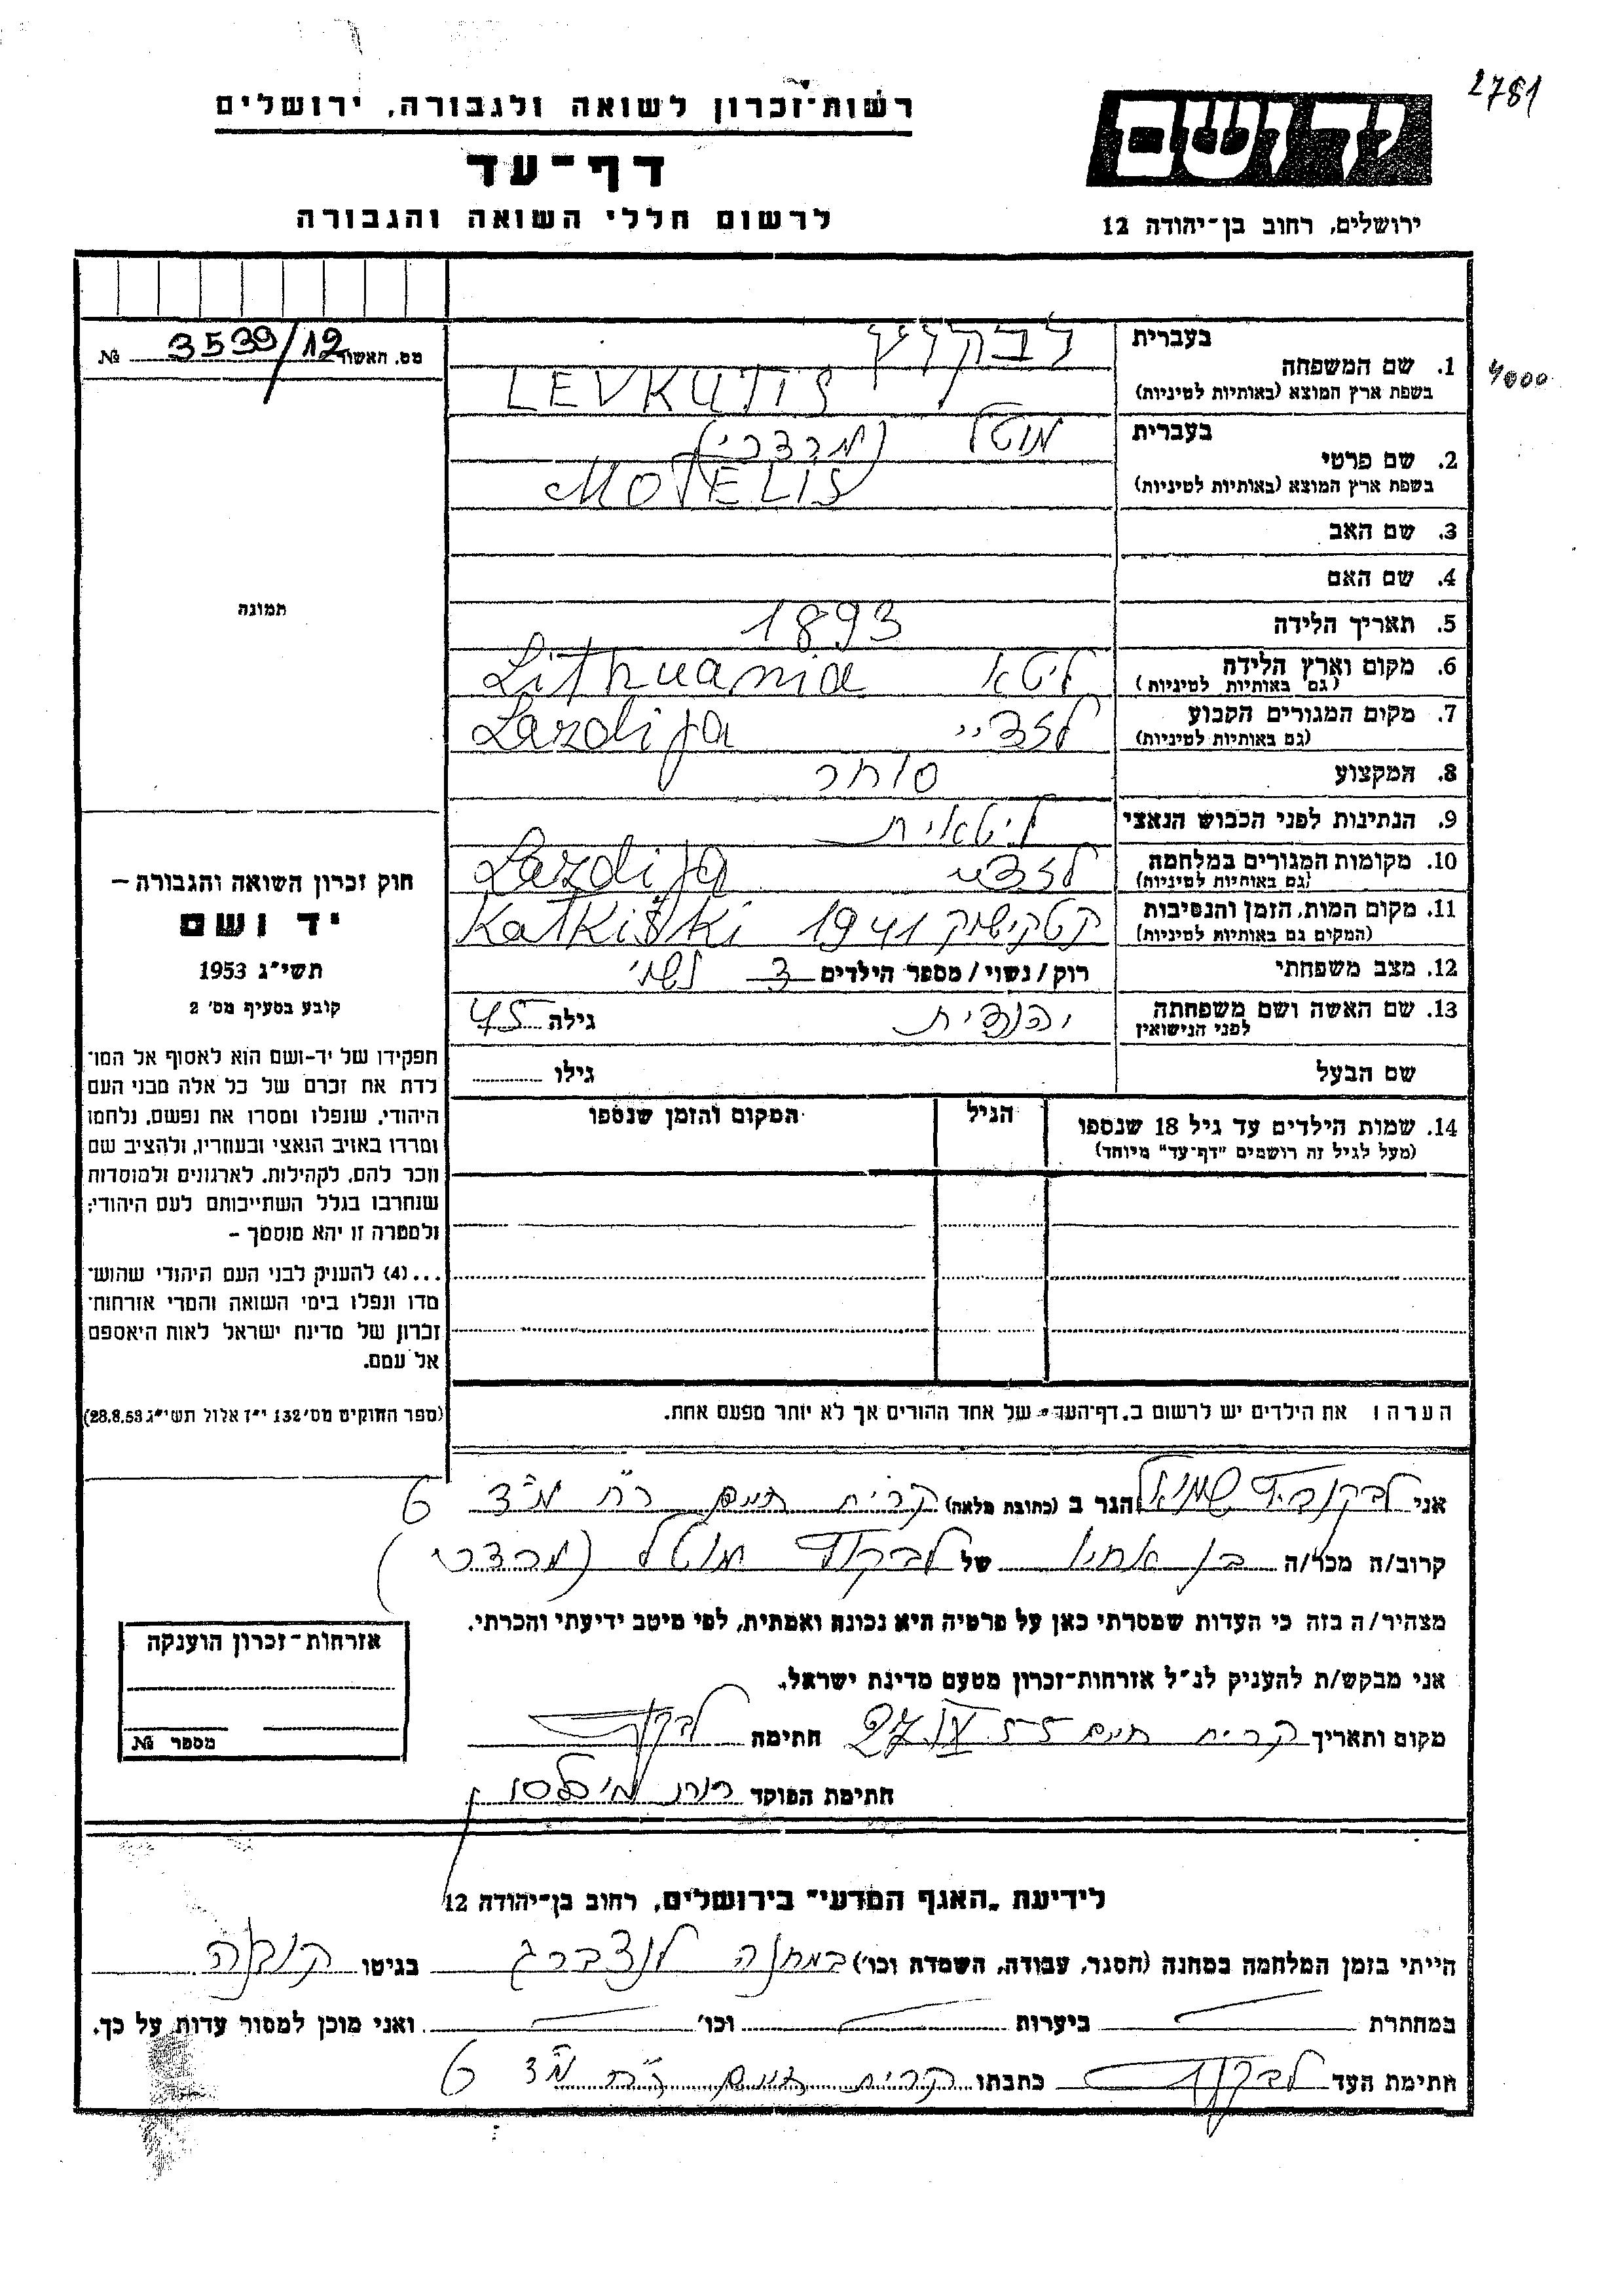 2781
רשות־זכרון לשואה ולגבורה, ירושלים
יד ושם
דף־עד
לרשום חללי השואה והגבורה
ירושלים, רחוב בן־יהודה 12
מס. האשור 3539/12 №
בעברית
1. שם המשפחה
בשפת ארץ המוצא (באותיות לטיניות) LEVKUTIS
4000
בעברית מוטל (מרדכי)
2. שם פרטי
בשפת ארץ המוצא (באותיות לטיניות) MOTELIS
3. שם האב
4. שם האם
תמונה
5. תאריך הלידה 1893
6. מקום וארץ הלידה ליטא Lithuania
(גם באותיות לטיניות)
7. מקום המגורים הקבוע לזדיי Lazdija
(גם באותיות לטיניות)
8. המקצוע סוחר
9. הנתינות לפני הכבוש הנאצי ליטאית
10. מקומות המגורים במלחמה לזדיי Lazdija
(גם באותיות לטיניות)
11. מקום המות, הזמן והנסיבות קטקישוק 1941 Katkiški
(המקום גם באותיות לטיניות)
12. מצב משפחתי רוק/נשוי/מספר הילדים 3 נשוי
13. שם האשה ושם משפחתה יהודית גילה 45
לפני הנישואין
שם הבעל גילו
14. שמות הילדים עד גיל 18 שנספו הגיל המקום והזמן שנספו
(מעל לגיל זה רושמים "דף־עד" מיוחד)
חוק זכרון השואה והגבורה —
יד ושם
תשי״ג 1953
קובע בסעיף מס׳ 2
תפקידו של יד-ושם הוא לאסוף אל המו־
לדת את זכרם של כל אלה מבני העם
היהודי, שנפלו ומסרו את נפשם, נלחמו
ומרדו באויב הנאצי ובעוזריו, ולהציב שם
וזכר להם, לקהילות, לארגונים ולמוסדות
שנחרבו בגלל השתייכותם לעם היהודי;
ולמטרה זו יהא מוסמך —
...(4) להעניק לבני העם היהודי שהוש־
מדו ונפלו בימי השואה והמרי אזרחות־
זכרון של מדינת ישראל לאות היאספם
אל עמם.
(ספר החוקים מס׳ 132 י״ז אלול תשי״ג 28.8.53)
הערה: את הילדים יש לרשום ב„דף־העד״ של אחד ההורים אך לא יותר מפעם אחת.
אני שמואל הגר ב (כתובת מלאה) קרית חיים רח מ״ד 6
קרוב/ה מכר/ה בן אחיו של מוטל (מרדכי)
מצהיר/ה בזה כי העדות שמסרתי כאן על פרטיה היא נכונה ואמתית, לפי מיטב ידיעתי והכרתי.
אני מבקש/ת להעניק לנ״ל אזרחות־זכרון מטעם מדינת ישראל.
מקום ותאריך קרית חיים 27.IX 55 חתימה
חתימת הפוקד
אזרחות־זכרון הוענקה
מספר №
לידיעת „האגף המדעי״ בירושלים, רחוב בן־יהודה 12
הייתי בזמן המלחמה במחנה (הסגר, עבודה, השמדה וכו׳) במחנה לנצברג בגיטו קובנה
במחתרת ביערות וכו׳ ואני מוכן למסור עדות על כך.
חתימת העד כתבתו קרית חיים רח מ״ד 6